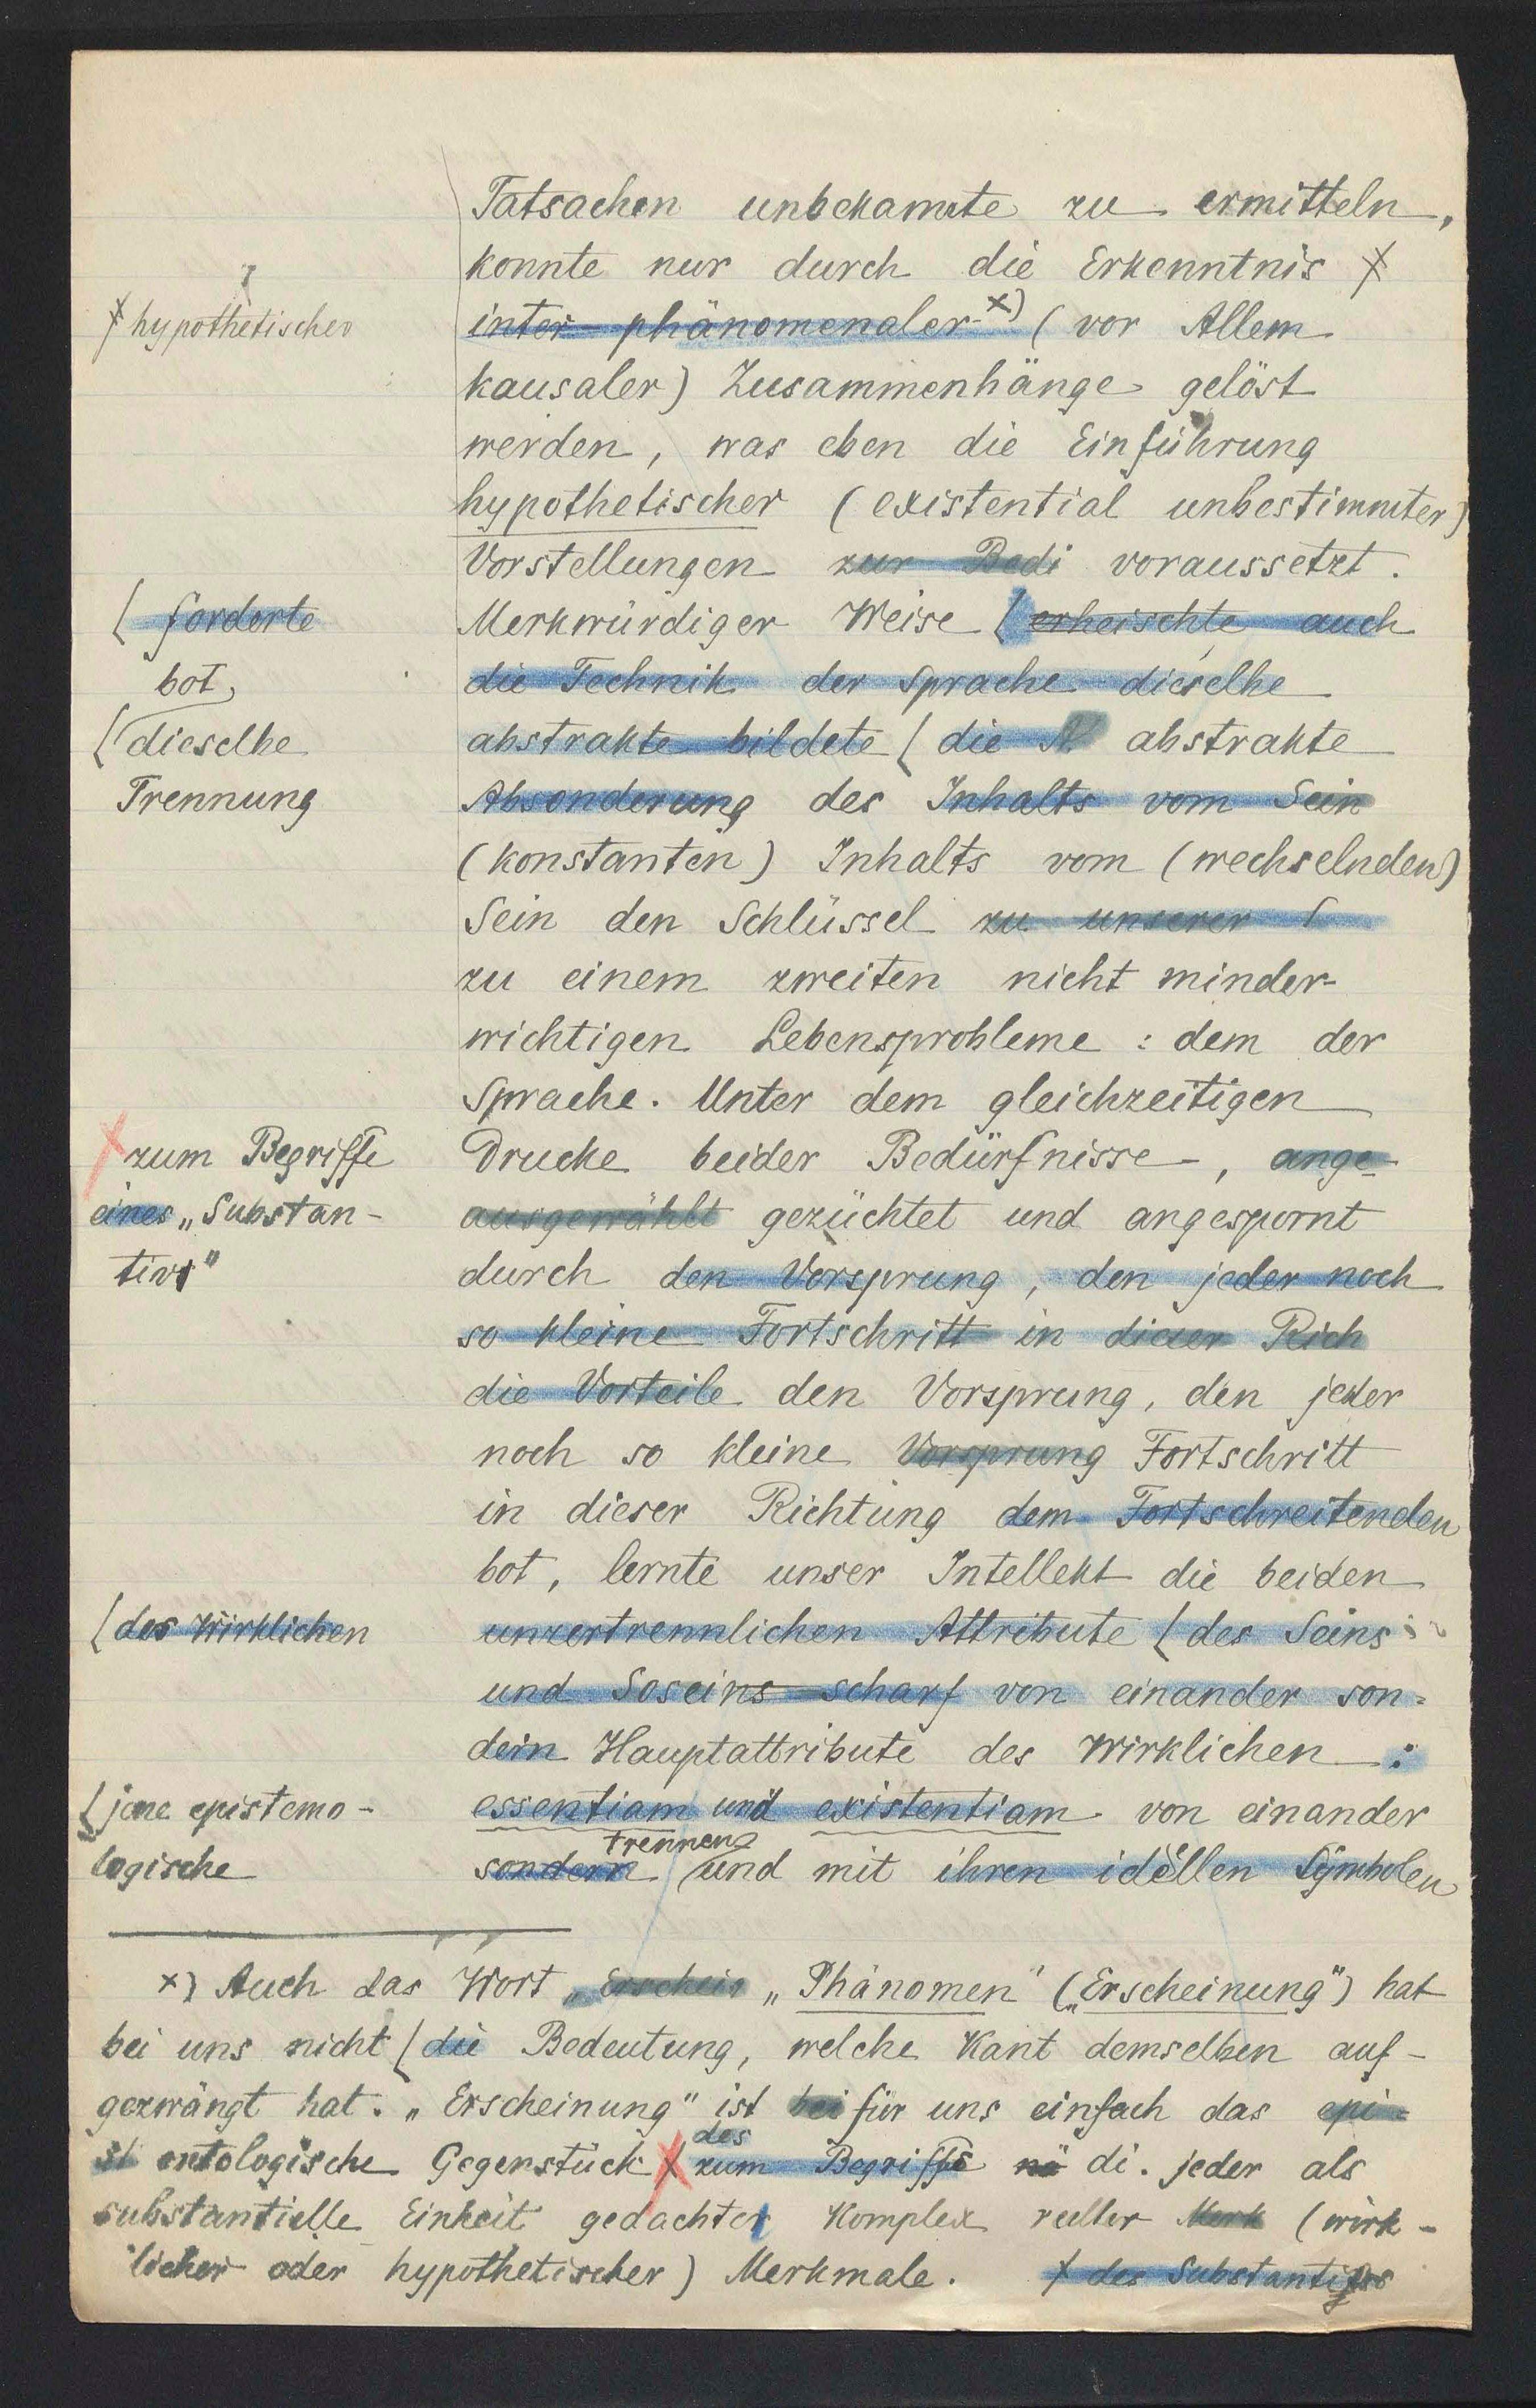 Tatsachen unbekannte zu ermitteln,
konnte nur durch die Erkenntnis
hypothetischer
inter-phänomenaler x) (vor Allem
kausaler) Zusammenhänge gelöst
werden, was eben die Einführung
hypothetischer (existential unbestimmter)
Vorstellungen zur Bedi voraussetzt.
forderte
Merkwürdiger Weise (erheischte auch
bot,
die Technik der Sprache dieselbe
(dieselbe
abstrakte bildete (die abstrakte
Trennung
Absonderung des Inhalts vom Sein
(konstanten) Inhalts vom (wechselnden)
Sein den Schlüssel zu unserer
zu einem zweiten nicht minder
wichtigen Lebensprobleme: dem der
Sprache. Unter dem gleichzeitigen
zum Begriffe
Drucke beider Bedürfnisse, ange-
eines „Substan-
ausgewählt gezüchtet und angespornt
tivs"
durch den Vorsprung, den jeder noch
so kleine Fortschritt in dieser Rich
die Vorteile den Vorsprung, den jeder
noch so kleine Vorsprung Fortschritt
in dieser Richtung dem Fortschreitenden
bot, lernte unser Intellekt die beiden
(des Wirklichen
unzertrennlichen Attribute (des Seins
und Soseins scharf von einander son-
dern Hauptattribute des Wirklichen:
(jene epistemo-
essentiam und existentiam von einander
logische
trennen
sondern und mit ihren ideellen Symbolen
x) Auch das Wort „Erschein „Phänomen" („Erscheinung") hat
bei uns nicht (die Bedeutung, welche Kant demselben auf-
gezwängt hat. „Erscheinung" ist bei für uns einfach das epi-
des
st ontologische Gegenstück x zum Begriffs di. jeder als
substantielle Einheit gedachter Komplex reeller Merk (wirk-
licher oder hypothetischer) Merkmale. x des Substantivs